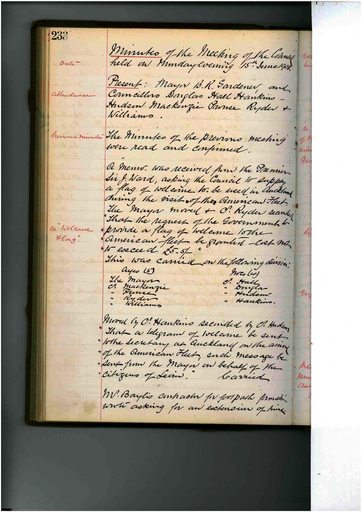 233
Minutes of the Meeting of the Council
held on Monday evening 15th June 1908
Date
Present: Mayor B. R. Gardener and
Attendance
Councillors Hall Hankins
Hudson Mackenzie Ryder &
Williams.
Previous minutes
The Minutes of the previous meeting
were read and confirmed.
A Memo. was received from the Premier
Sir J. Ward, asking the Council to supply
a flag of welcome to be used in Auckland
during the visit of the American Fleet.
The Mayor moved & Cr Ryder
That the request of the Government to
re "Welcome
provide a flag of welcome to the
Flag"
American fleet be granted cost not
to exceed £5.
This was carried on the following division
Ayes (5) Noes (4)
The Mayor Cr Hall
Cr Mackenzie
" "
" Ryder
" Williams " Hankins.
Moved by Cr Hankins seconded by Cr
That a telegram of welcome be sent
to the Secretary at Auckland on the
of the American Fleet, such message be
sent from the Mayor on behalf of the
citizens of Levin. Carried
Mr Baylis contractor for footpath
wrote asking for an extension of time